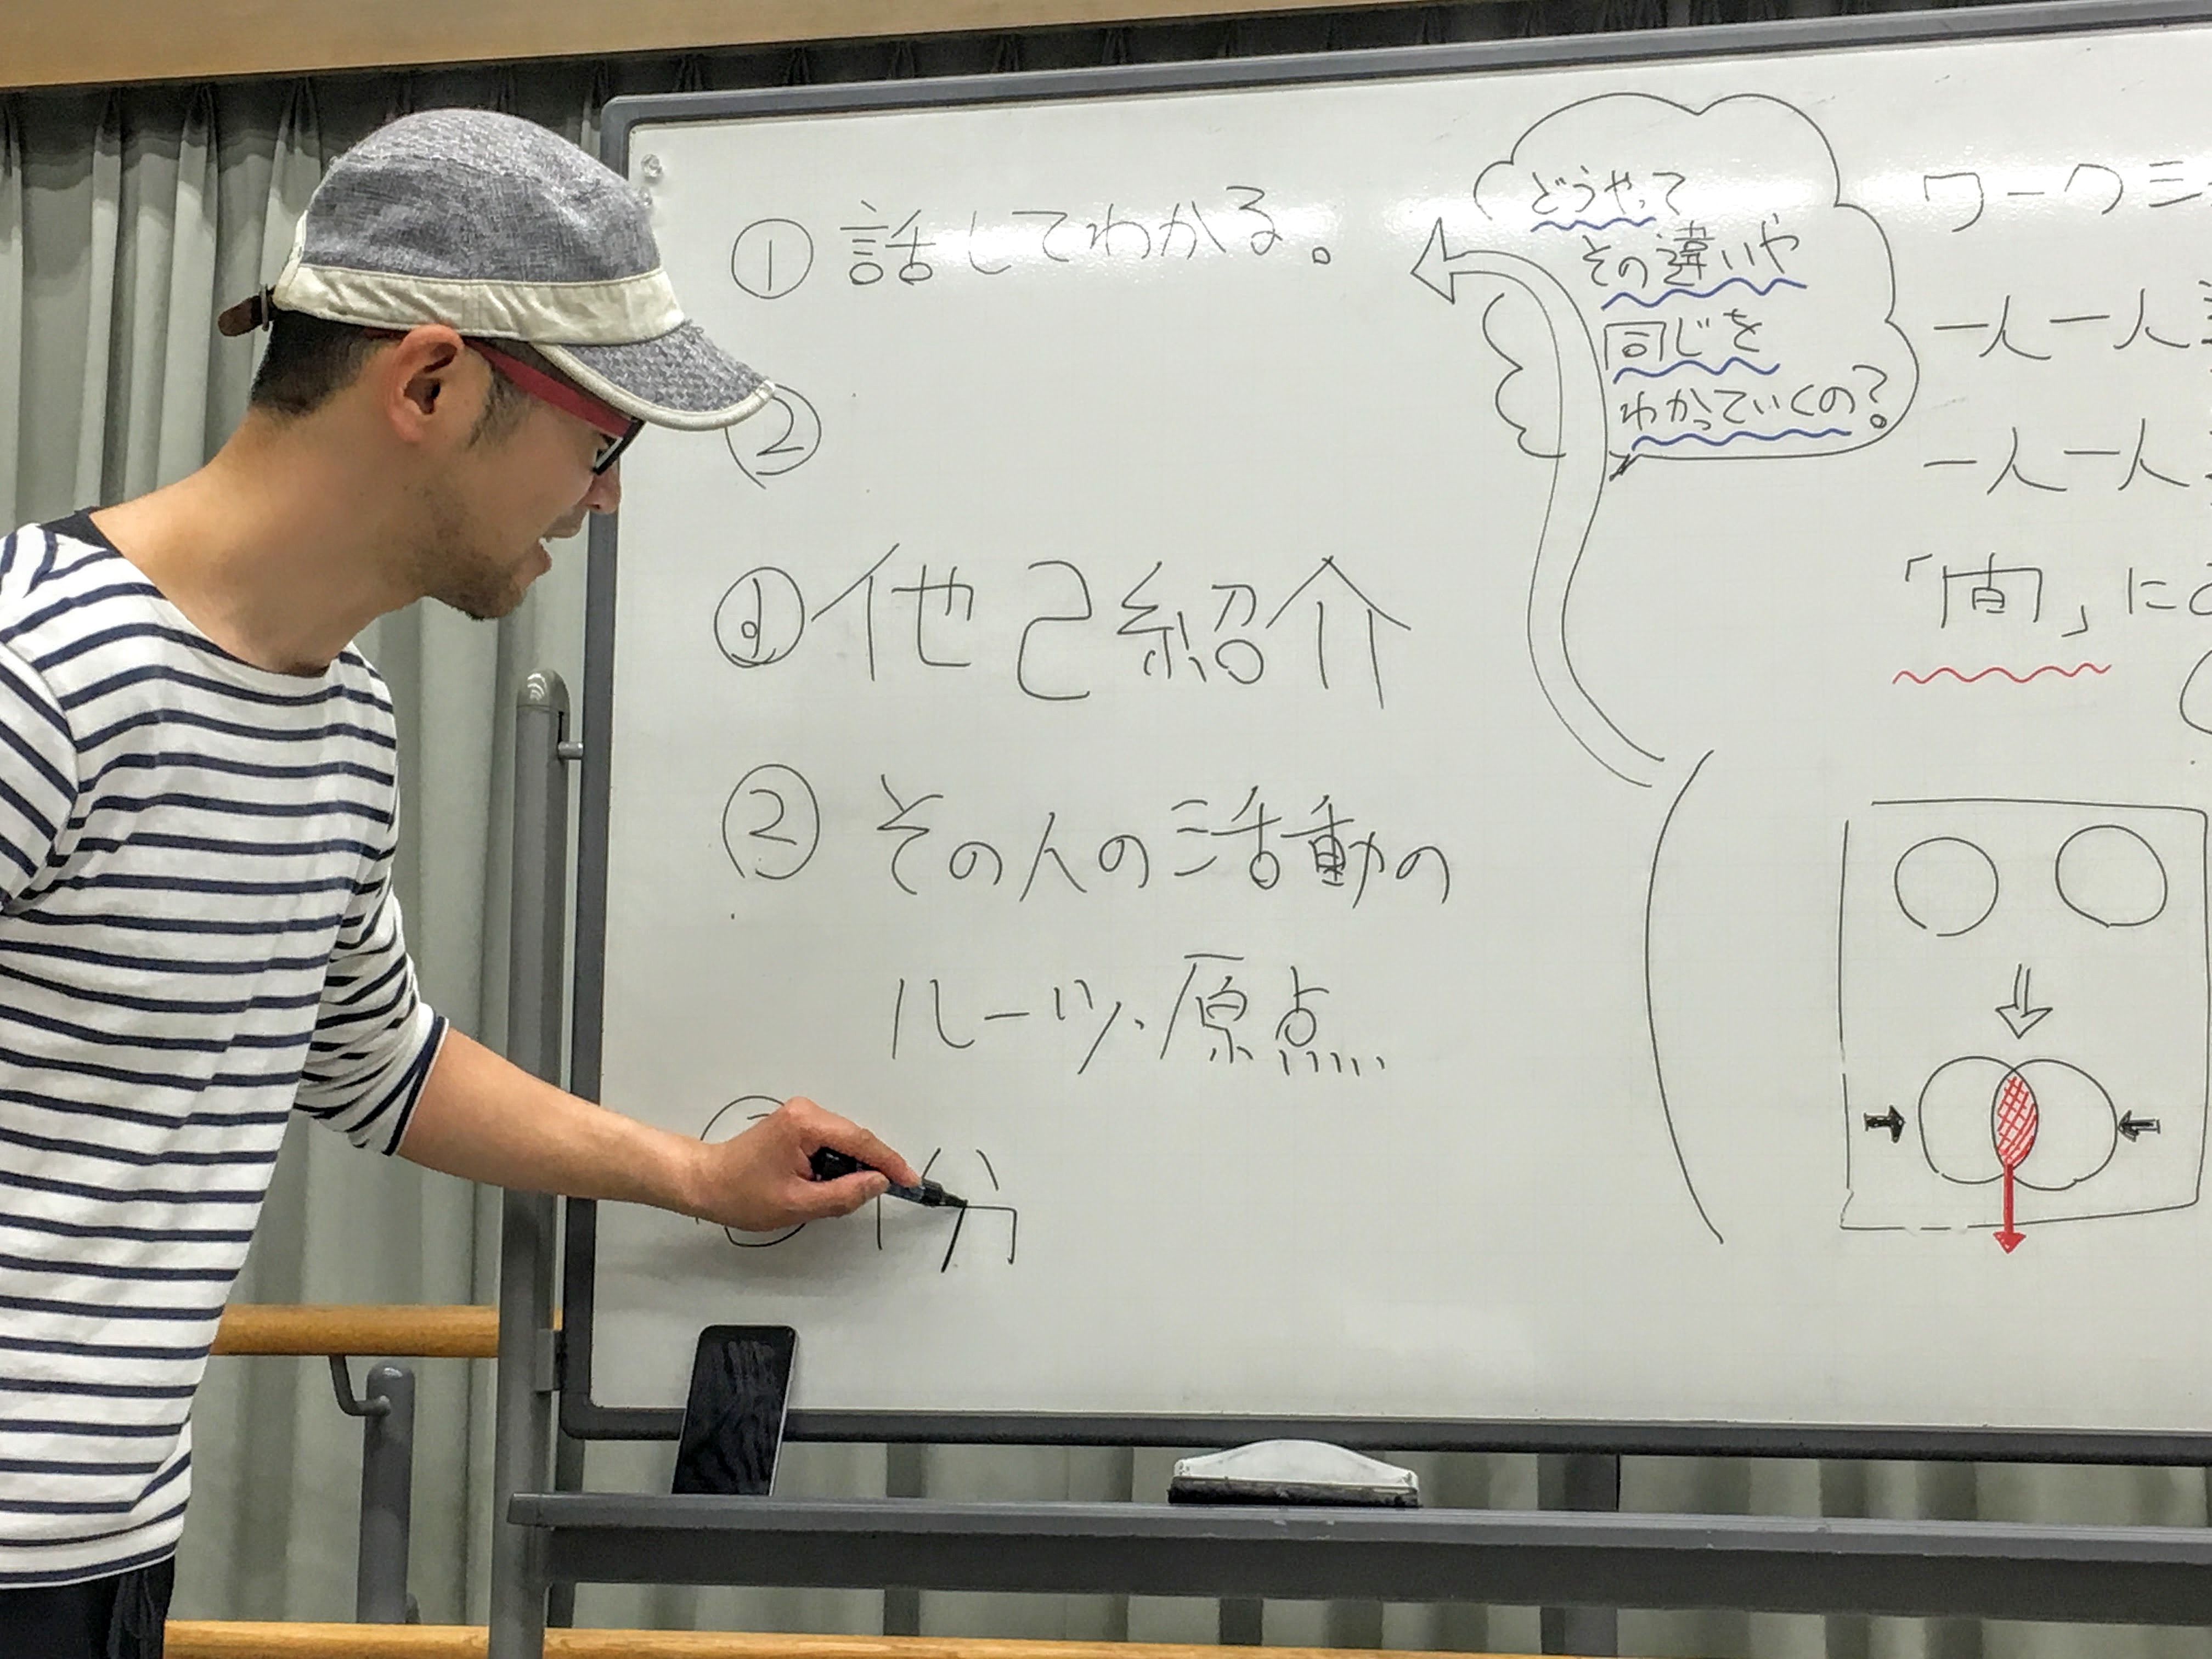 ① 話してわかる。
②
① 他己紹介
② その人の活動の
ルーツ・原点
1分
どうやって
その違いや
同じを
わかっていくの?
ワークシ
一人一人
一人一人
「間」に